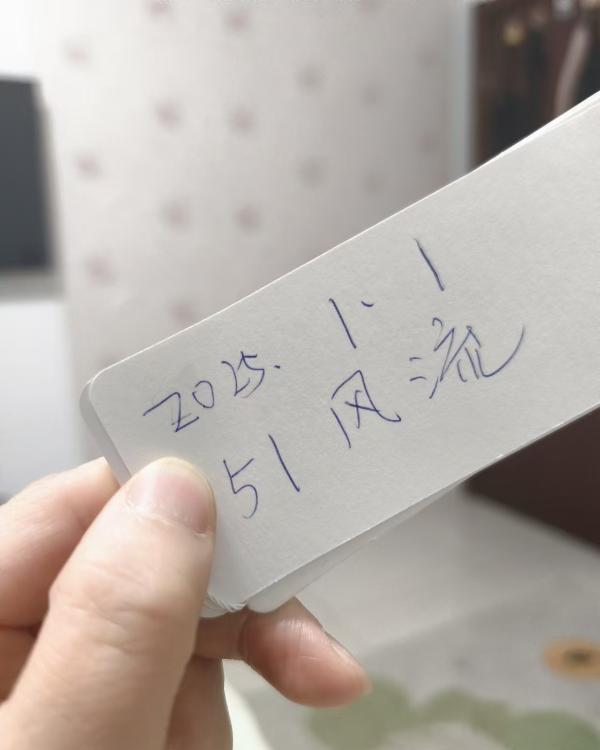 2025. 1. 1
51 风流